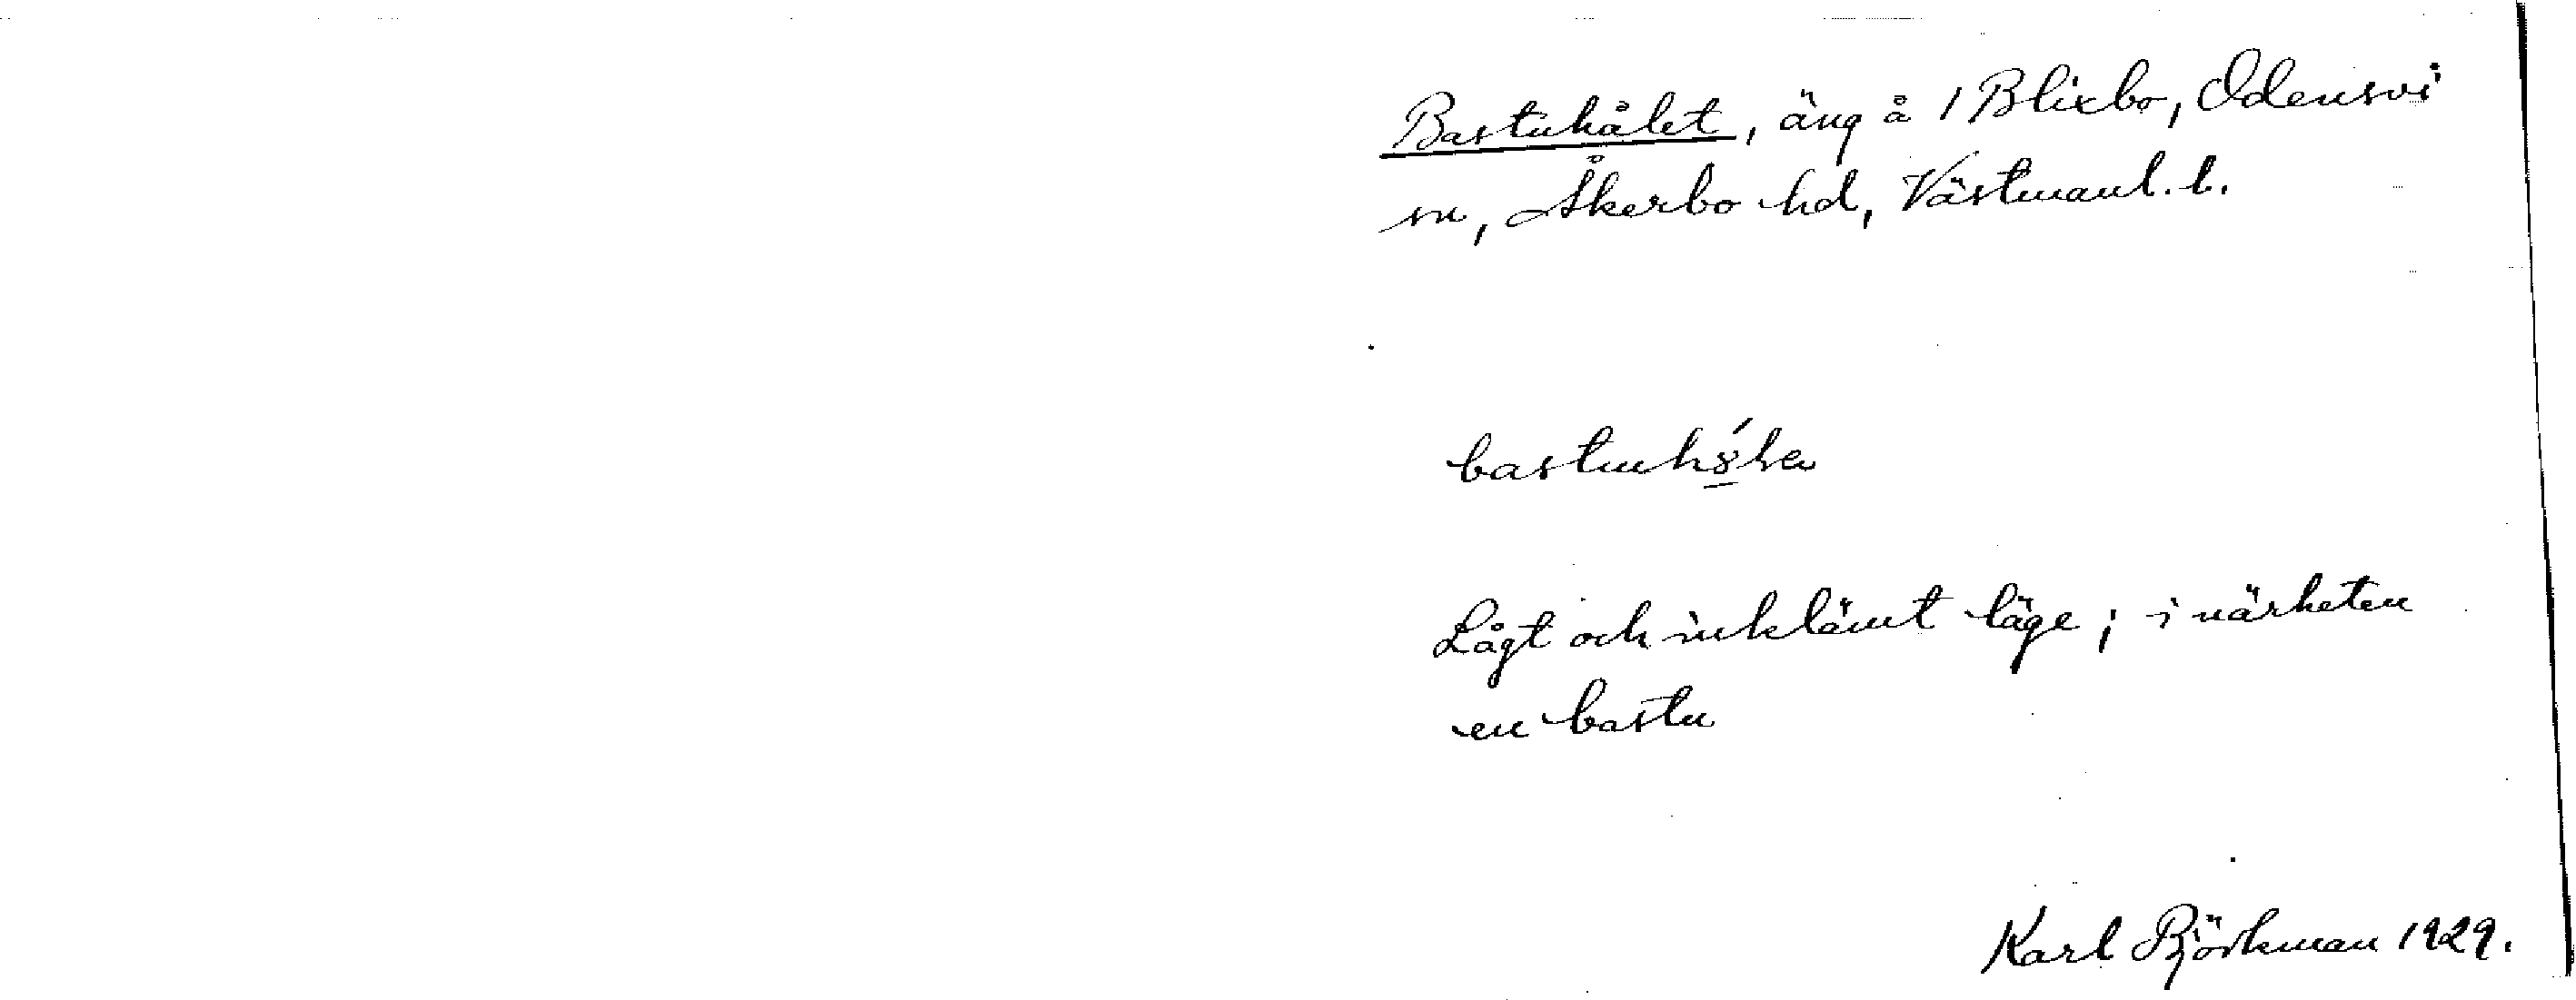 Bastuhålet, äng å 1 Blixbo, Odensvi
sn, Åkerbo hd, Västmanl. l.
Lågt och inklämt läge; i närheten
en bastu
Karl Björkman 1929.